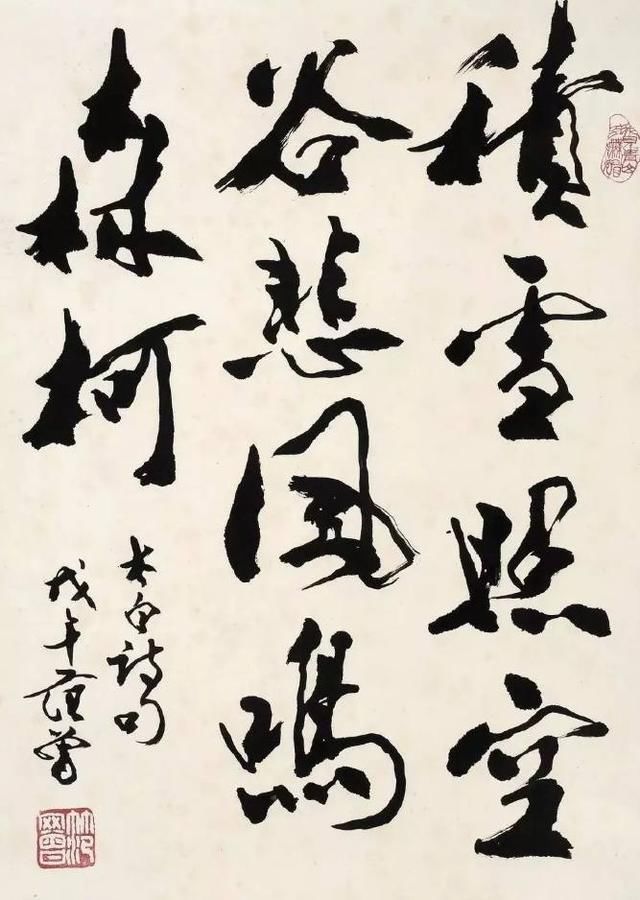 積雪照空
谷悲風鳴
森柯
太白詩句
戊午范曾